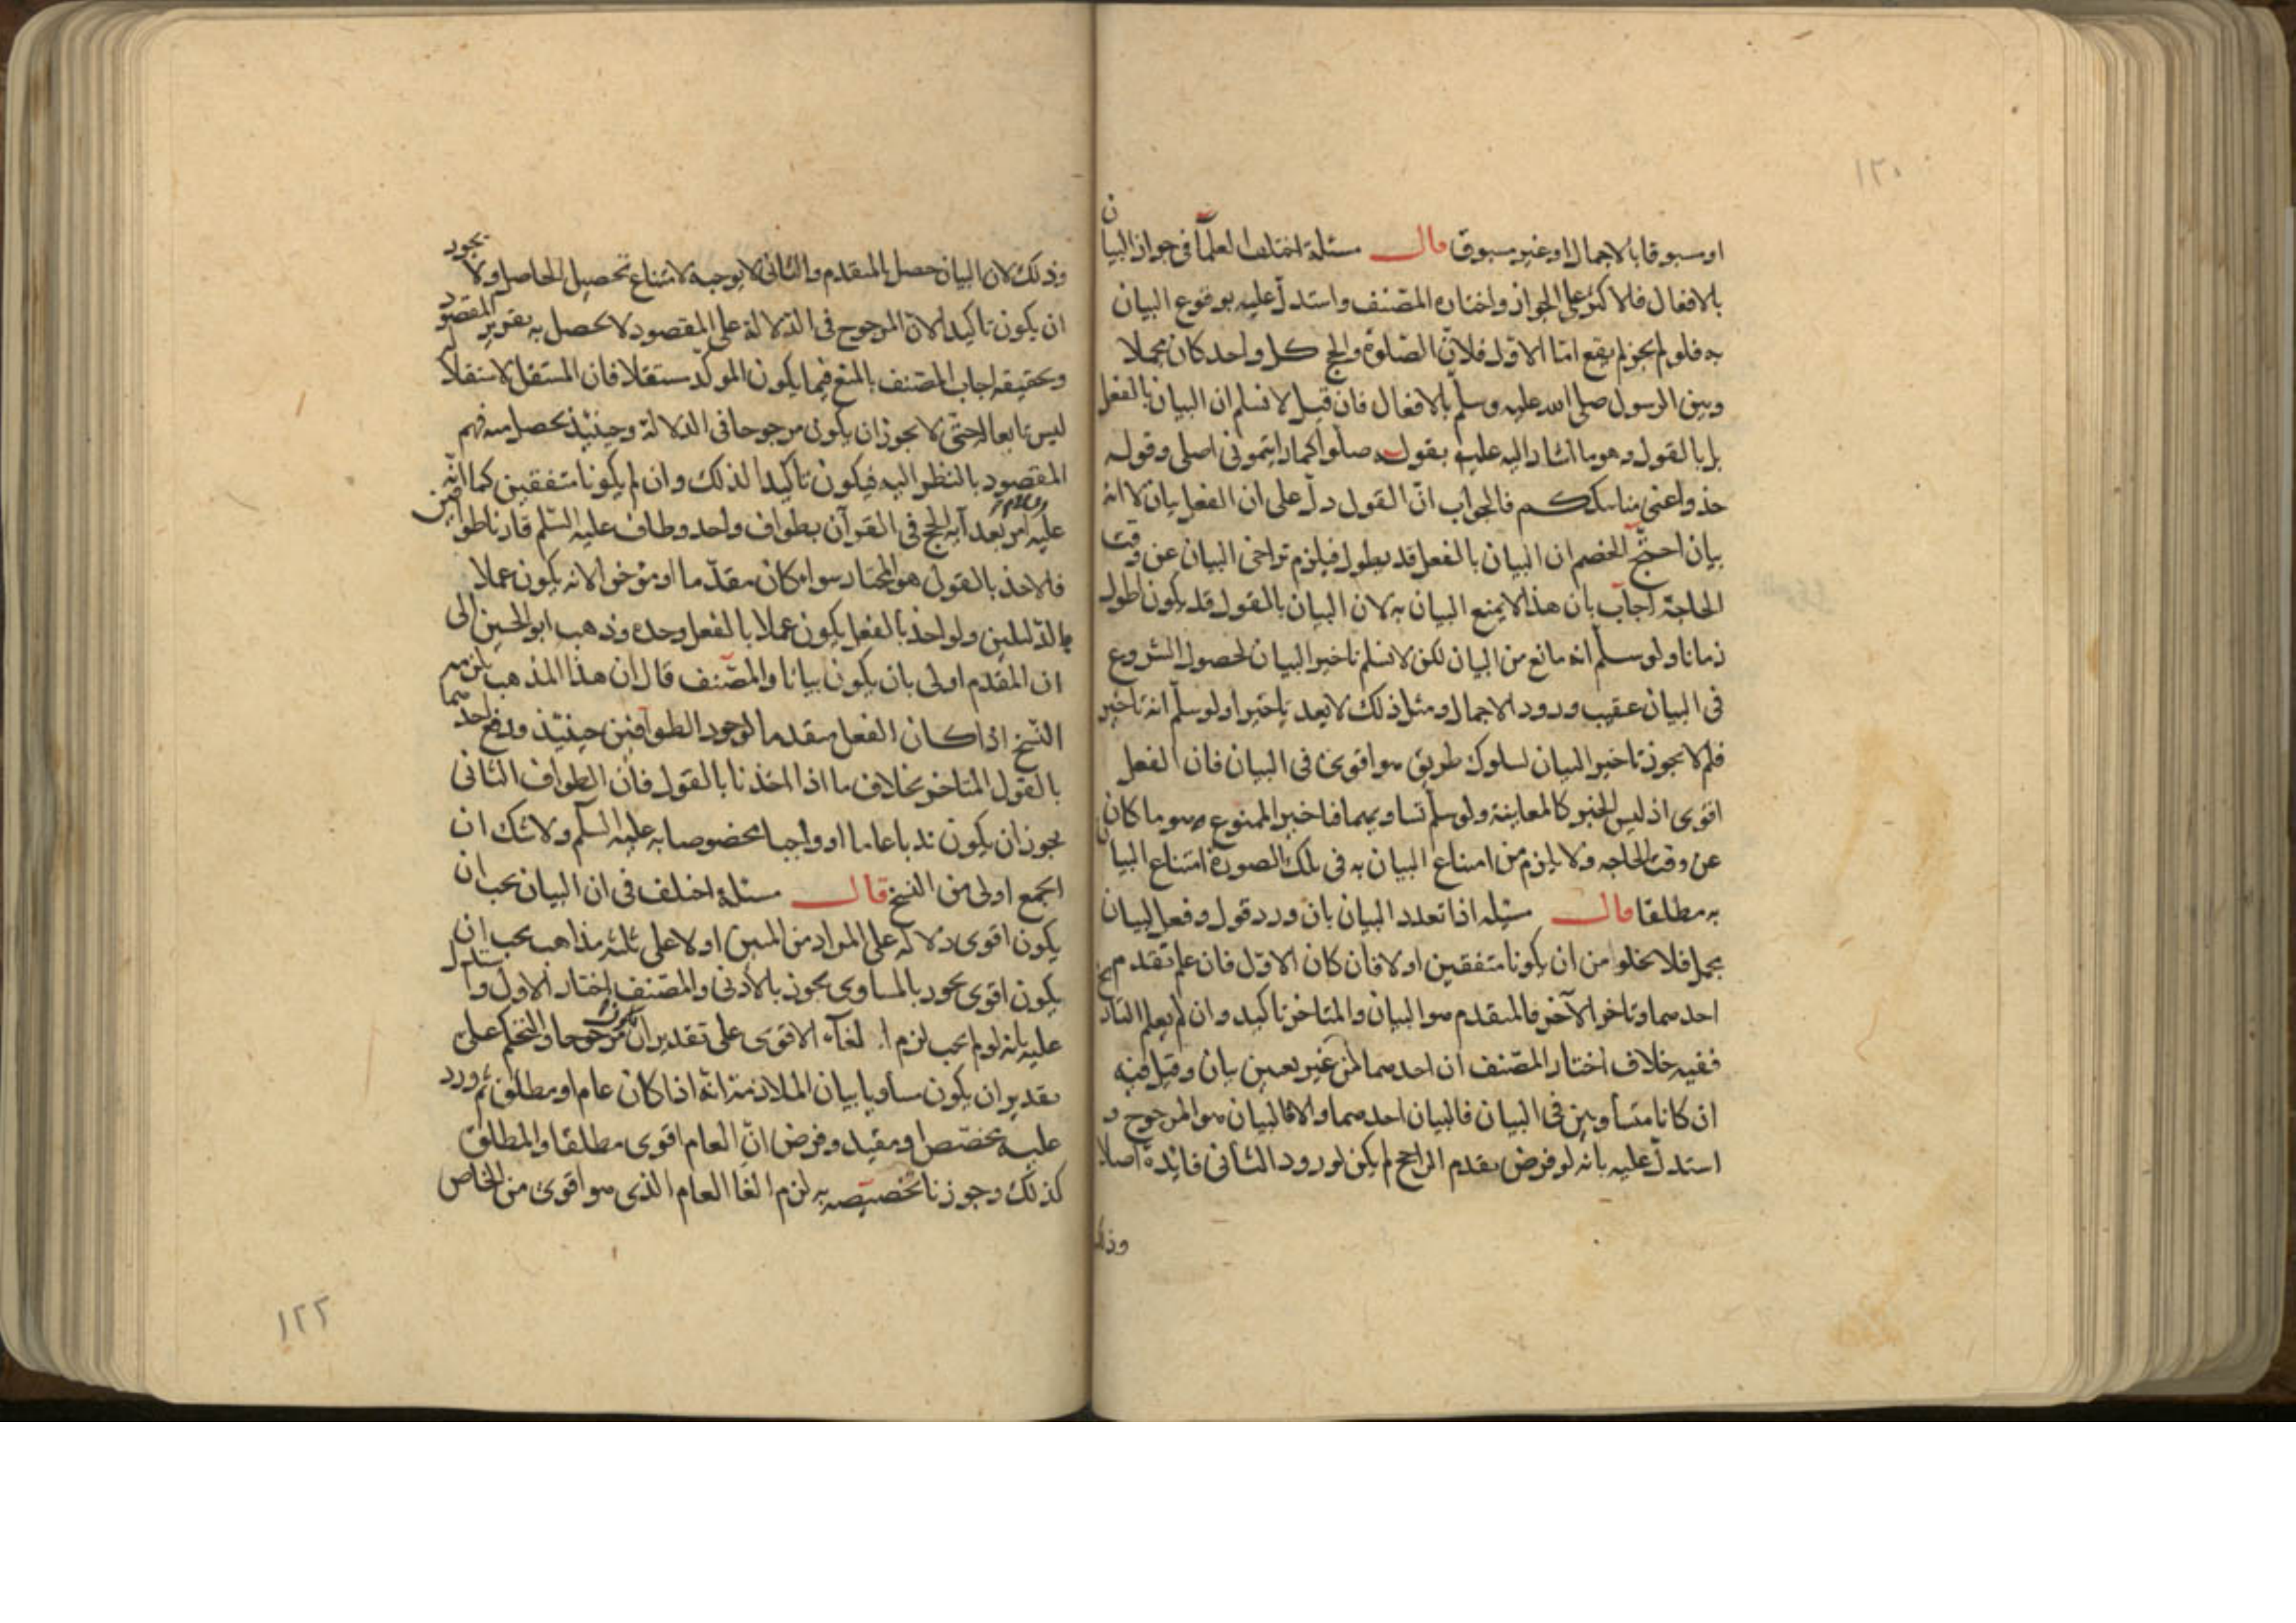 ١٢٠
او مسبوقا بالاجمال او غير مسبوق قال مسئلة اختلف العلمآ في جواز البيان
بالافعال فالاكثر على الجواز واختاره المصنف واستدلّ عليه بوقوع البيان
به فلو لم يجز لم يقع امّا الاوّل فلانّ الصّلوة والحج كل واحد كان مجملا
وبين الرسول صلى الله عليه وسلم بالافعال فان قيل لا نسلم ان البيان بالفعل
بل بالقول وهو ما اشار اليه عليه بقوله صلّوا كما رايتموني اصلي وقوله
خذوا عني مناسككم فالجواب انّ القول دلّ على ان الفعل بيان لا انه
بيان احتجّ الخصم ان البيان بالفعل قد يطول فيلزم تراخى البيان عن وقت
الحاجة اجاب بان هذا لا يمنع البيان به لان البيان بالقول قد يكون اطول
زمانا ولو سلّم انه مانع من البيان لكن لا نسلم تاخير البيان لحصول الشروع
في البيان عقيب ورود الاجمال ومثل ذلك لا يعد تاخيرا ولو سلّم انه تاخير
فلم لا يجوز تاخير البيان لسلوك طريق هو اقوى في البيان فان الفعل
اقوى اذ ليس الخبر كالمعاينة ولو سلم تساويهما فتاخير الممنوع هو ما كان
عن وقت الحاجه ولا يلزم من امتناع البيان به في تلك الصورة امتناع البيان
به مطلقا قال مسئله اذا تعدد البيان بان ورد قول وفعل لبيان
مجمل فلا يخلوا من ان يكونا متفقين او لا فان كان الاوّل فان علم تقدم
احدهما وتاخر الآخر فالمتقدم هو البيان والمتاخر تاكيد وان لم يعلم التاريخ
ففيه خلاف اختار المصّنف ان احدهما من غير تعيين بيان وقيل فيه
ان كانا متساويين في البيان فالبيان احدهما والا فالبيان هو المرجوح و
استدلّ عليه بانه لو فرض تقدم الراجح لم يكن لورود الثاني فايدة اصلا
وذلك
وذلك لان البيان حصل بالمتقدم والثاني لا يوجبه لامتناع تحصيل الحاصل ولا يجوز
ان يكون تاكيدا لانّ المرجوح في الدّلالة على المقصود لا يحصل به تقرير المقصود
وتحقيقه اجاب المصّنف بالمنع فيما يكون الموكّد مستقلا فان المستقل لاستقلاله
ليس تابعا له حتى لا يجوز ان يكون مرجوحا في الدلالة وحينئذ يحصل منه فهم
المقصود بالنظر اليه فيكون تاكيدا لذلك وان لم يكونا متفقين كما انّه
عليه السلام امر بعد آية الحج في القرآن بطواف واحد وطاف عليه السّلم قارنا طوافين
فالاخذ بالقول هو المختار سواء كان مقدّما او مؤخرا لانه يكون عملا
بالدّليلين ولو اخذ بالفعل يكون عملا بالفعل وحده وذهب ابو الحسين الى
ان المقدم اولى بان يكون بيانا والمصّنف قال ان هذا المذهب يلزمه
النّسخ اذا كان الفعل متقدما لوجود الطوافين حينئذ ورفع احدهما
بالقول المتاخر بخلاف ما اذا اخذنا بالقول فان الطواف الثاني
يجوز ان يكون ندبا عاما او واجبا مخصوصا به عليه السلم ولا شك ان
الجمع اولى من النسخ قال مسئلة اختلف في ان البيان يجب ان
يكون اقوى دلالة على المراد من المبين او لا على ثلثه مذاهب يجب ان
يكون اقوى يجوز بالمساوي يجوز بالادنى والمصّنف اختار الاول واستدل
عليه بانه لو لم يجب لزم الغآء الاقوى على تقدير ان يكون مرجوحا والتحكم على
تقدير ان يكون مساويا بيان الملازمة انه اذا كان عام او مطلق ثم ورد
عليه مخصّص او مقيد وفرض انّ العام اقوى مطلقا والمطلق
كذلك وجوزنا تخصيصه به لزم الغا العام الذي هو اقوى من الخاص
١٢٢